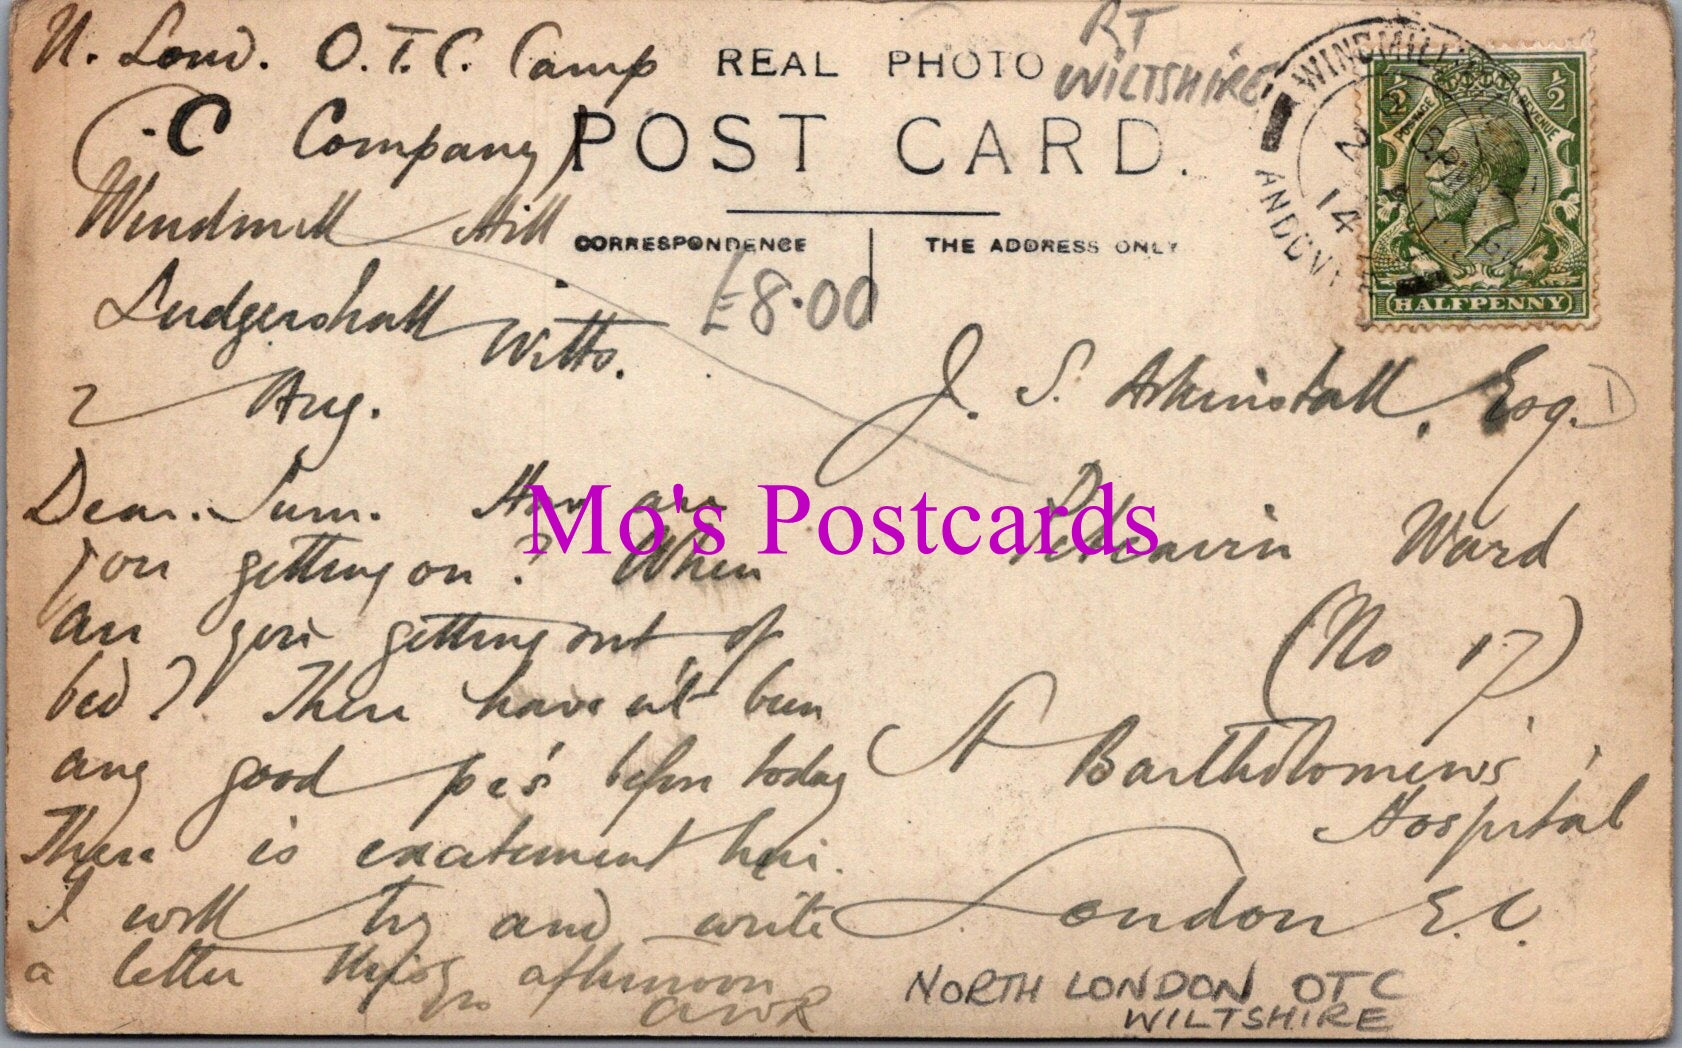 U. Lond. O.T.C. Camp
(C Company)
Windmill Hill
Ludgershall
Wilts.
2 Aug.
Dear Sum. How are
you getting on? When
are you getting out of
bed? There haven't been
any good pcs before today
There is excitement here.
I will try and write
a letter this afternoon
AWR
REAL PHOTO
POST CARD.
CORRESPONDENCE
THE ADDRESS ONLY
RT
WILTSHIRE
£8.00
WINDMILL
ANDOVER
2
14
½ ½
POSTAGE REVENUE
HALFPENNY
J. S. Arkinstall, Esq.
Ward
(No 17)
St Bartholomew's
Hospital
London E.C.
Mo's Postcards
NORTH LONDON OTC
WILTSHIRE